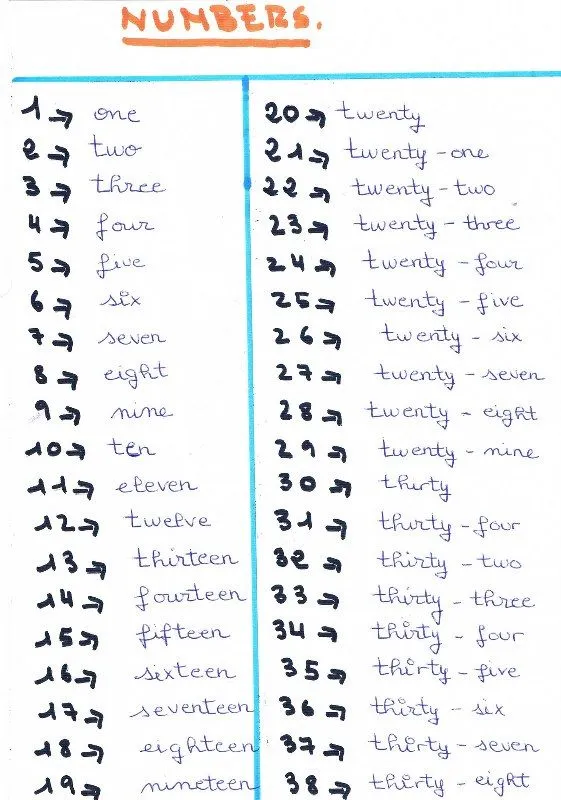 NUMBERS.
1 → one
2 → two
3 → three
4 → four
5 → five
6 → six
7 → seven
8 → eight
9 → nine
10 → ten
11 → eleven
12 → twelve
13 → thirteen
14 → fourteen
15 → fifteen
16 → sixteen
17 → seventeen
18 → eighteen
19 → nineteen
20 → twenty
21 → twenty-one
22 → twenty-two
23 → twenty-three
24 → twenty-four
25 → twenty-five
26 → twenty-six
27 → twenty-seven
28 → twenty-eight
29 → twenty-nine
30 → thirty
31 → thirty-four
32 → thirty-two
33 → thirty-three
34 → thirty-four
35 → thirty-five
36 → thirty-six
37 → thirty-seven
38 → thirty-eight